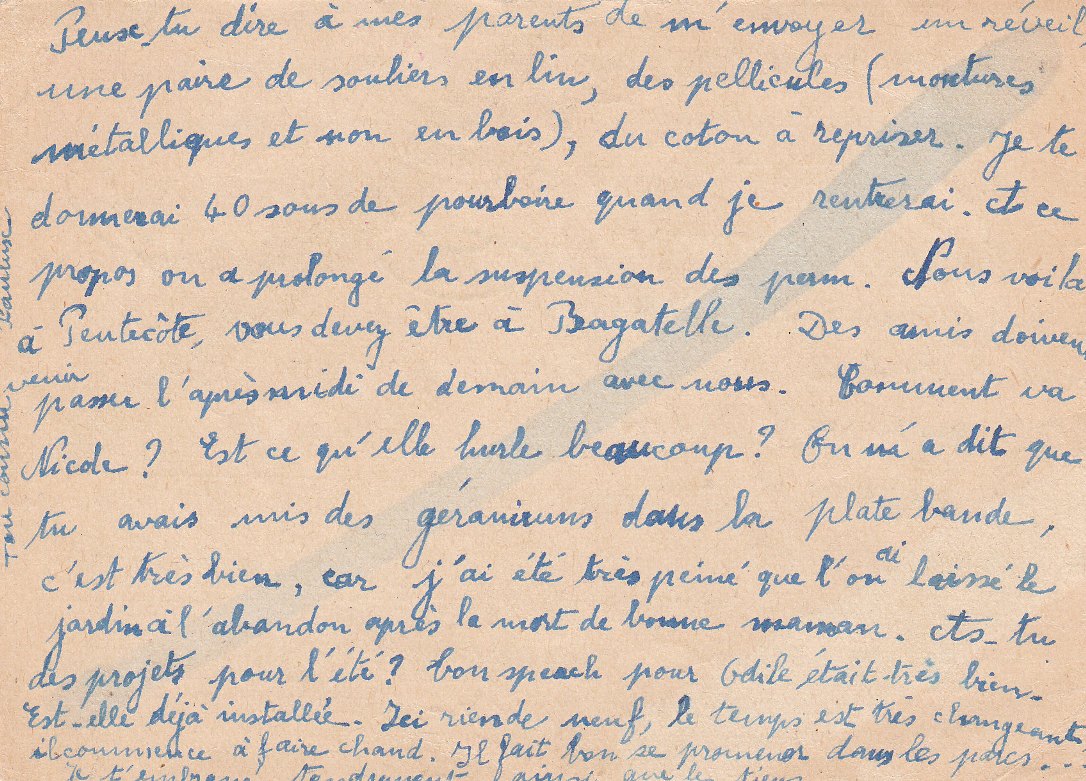 Peux-tu dire à mes parents de m'envoyer un réveil,
une paire de souliers en lin, des pellicules (montures
métalliques et non en bois), du coton à repriser. Je te
donnerai 40 sous de pourboire quand je rentrerai. A ce
propos on a prolongé la suspension des perm. Nous voilà
à Pentecôte, vous devez être à Bagatelle. Des amis doivent
venir
passer l'après midi de demain avec nous. Comment va
Nicole ? Est ce qu'elle hurle beaucoup ? On m'a dit que
tu avais mis des géraniums dans la plate bande,
c'est très bien, car j'ai été très peiné que l'on ai laissé le
jardin à l'abandon après la mort de bonne maman. As-tu
des projets pour l'été ? Ton speach pour Odile était très bien.
Est-elle déjà installée. Ici rien de neuf, le temps est très changeant
il commence à faire chaud. Il fait bon se promener dans les parcs...
Je t'embrasse tendrement ainsi que les tiens
Ton cousin